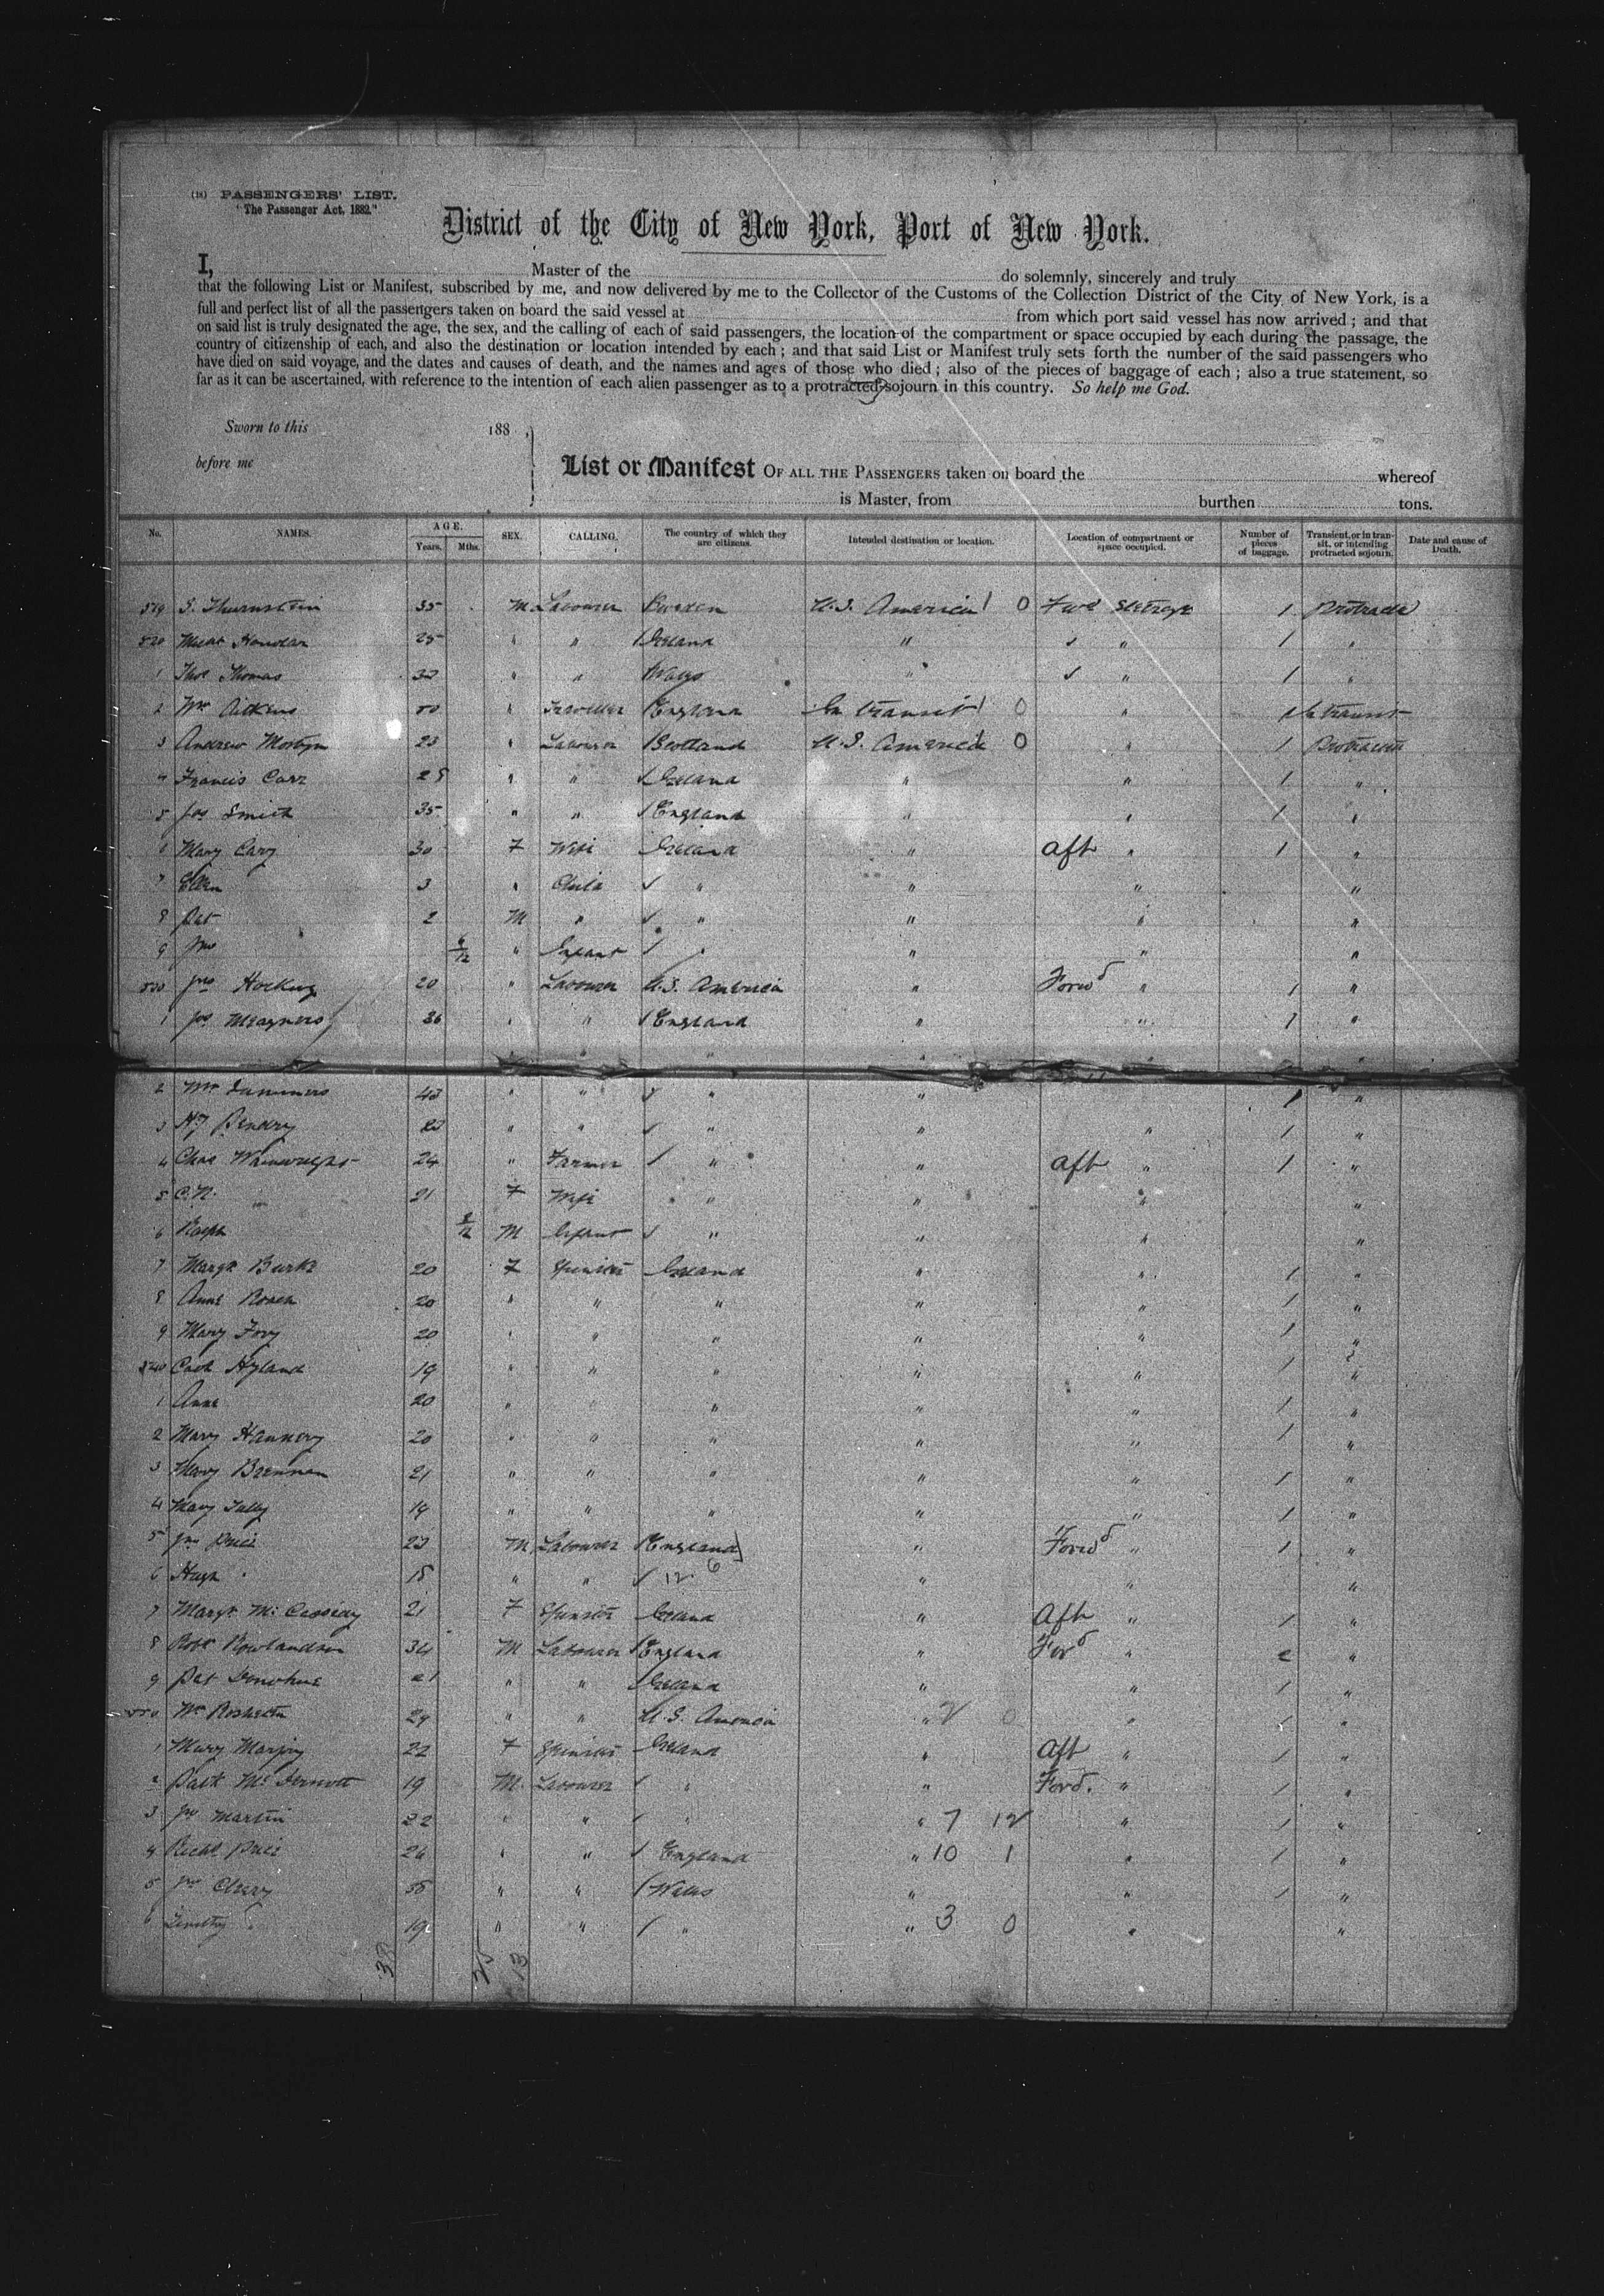 (18) PASSENGERS' LIST.
"The Passenger Act, 1882."
District of the City of New York, Port of New York.
I, Master of the do solemnly, sincerely and truly
that the following List or Manifest, subscribed by me, and now delivered by me to the Collector of the Customs of the Collection District of the City of New York, is a
full and perfect list of all the passengers taken on board the said vessel at from which port said vessel has now arrived ; and that
on said list is truly designated the age, the sex, and the calling of each of said passengers, the location of the compartment or space occupied by each during the passage, the
country of citizenship of each, and also the destination or location intended by each ; and that said List or Manifest truly sets forth the number of the said passengers who
have died on said voyage, and the dates and causes of death, and the names and ages of those who died ; also of the pieces of baggage of each ; also a true statement, so
far as it can be ascertained, with reference to the intention of each alien passenger as to a protracted sojourn in this country. So help me God.
Sworn to this 188
before me
List or Manifest OF ALL THE PASSENGERS taken on board the whereof
is Master, from burthen tons.
No. NAMES. AGE. Years. Mths. SEX. CALLING. The country of which they are citizens. Intended destination or location. Location of compartment or space occupied. Number of pieces of baggage. Transient, or in transit, or intending protracted sojourn. Date and cause of Death.
519 35 M Labourer Sweden U.S. America 0 Fwd Steerage 1 Protracted
520 25 " " Ireland " " 1 "
1 Thos Thomas " " Wales " " 1 "
2 Wm Aitkens 50 " Traveller England In transit 0 " 1 In transit
3 Andrew Mostyn 23 " Labourer Scotland U.S. America 0 " 1 Protracted
4 Francis Carr 28 " " Ireland " " 1 "
5 Jas Smith 35 " " England " " 1 "
6 Mary Cary 30 F Wife Ireland " aft " 1 "
7 Ellen 3 " Child " " " "
8 Pat 2 M " " " " "
9 Jno " Infant " " " "
530 Jno Hocking 20 " Labourer U.S. America " Forwd " 1 "
1 Jas 36 " " England " " 1 "
2 Wm Summers 43 " " " " 1 "
3 H.J. Bendry 23 " " " " " 1 "
4 Chas Wainwright 24 " Farmer " " aft " 1 "
5 C.N. " 21 F Wife " " " "
6 Ralph 8/12 M Infant " " " "
7 Margt Burke 20 F Spinster Ireland " " 1 "
8 Anne Roach 20 " " " " " 1 "
9 Mary Fory 20 " " " " " 1 "
540 Cath Hyland 19 " " " " " 1 "
1 Anne 20 " " " " " 1 "
2 Mary Hannery 20 " " " " " 1 "
3 Mary Brennan 21 " " " " " 1 "
4 Mary Tully 19 " " " " " 1 "
5 Jno Price 23 M Labourer England " Forwd " 1 "
6 Hugh " 18 " " 12 6 " " "
7 Margt McCassidy 21 F Spinster Ireland " Aft " 1 "
8 Robt Rowlandson 34 M Labourer England " Ford " 2 "
9 Pat Donohue 21 " " Ireland " " 1 "
550 Wm 29 " " U.S. America " 2 0 " 1 "
1 Mary 22 F Spinster Ireland " Aft " 1 "
2 Patk McDermott 19 M Labourer " " Ford. " 1 "
3 Jno Martin 22 " " " " 7 12 " 1 "
4 Richd Price 26 " " England " 10 1 " 1 "
5 Jno Cleary " " Wales " " 1 "
6 Timothy " 19 " " " " 3 0 " "
38 25 13